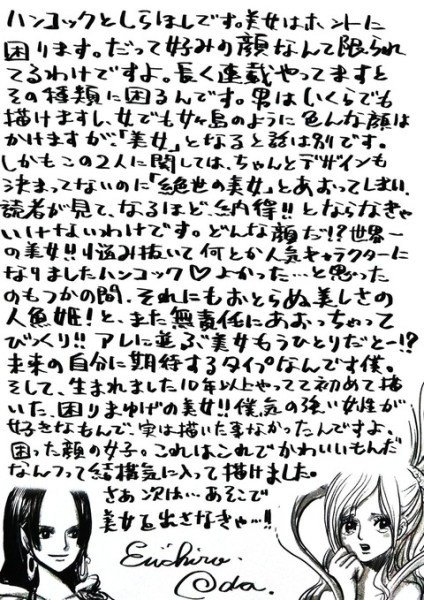 ハンコックとしらほしです。美女はホントに
困ります。だって好みの顔なんて限られ
てるわけですよ。長く連載やってますと
その種類に困るんです。男はいくらでも
描けますし、女でも女ヶ島のように色んな顔は
かけますが、「美女」となると話は別です。
しかもこの2人に関しては、ちゃんとデザインも
決まってないのに「絶世の美女」とあおってしまい、
読者が見て、なるほど、納得!!とならなきゃ
いけないわけです。どんな顔だ!?世界一
の美女!!悩み抜いて何とか人気キャラクターに
なりましたハンコック♡よかった…と思った
のもつかの間、それにもおとらぬ美しさの
人魚姫!と、また無責任にあおっちゃって
びっくり!!アレに並ぶ美女もうひとりだとー!?
未来の自分に期待するタイプなんです僕。
そして、生まれました10年以上やってて初めて描
いた、困りまゆげの美女!!僕気の強い女性が
好きなもんで、実は描いた事なかったんですよ。
困った顔の女子。これはこれでかわいいもんだ
なんつって結構気に入って描けました。
さあ次は…あそこで
美女を出さなきゃ…!!
Eiichiro
Oda.